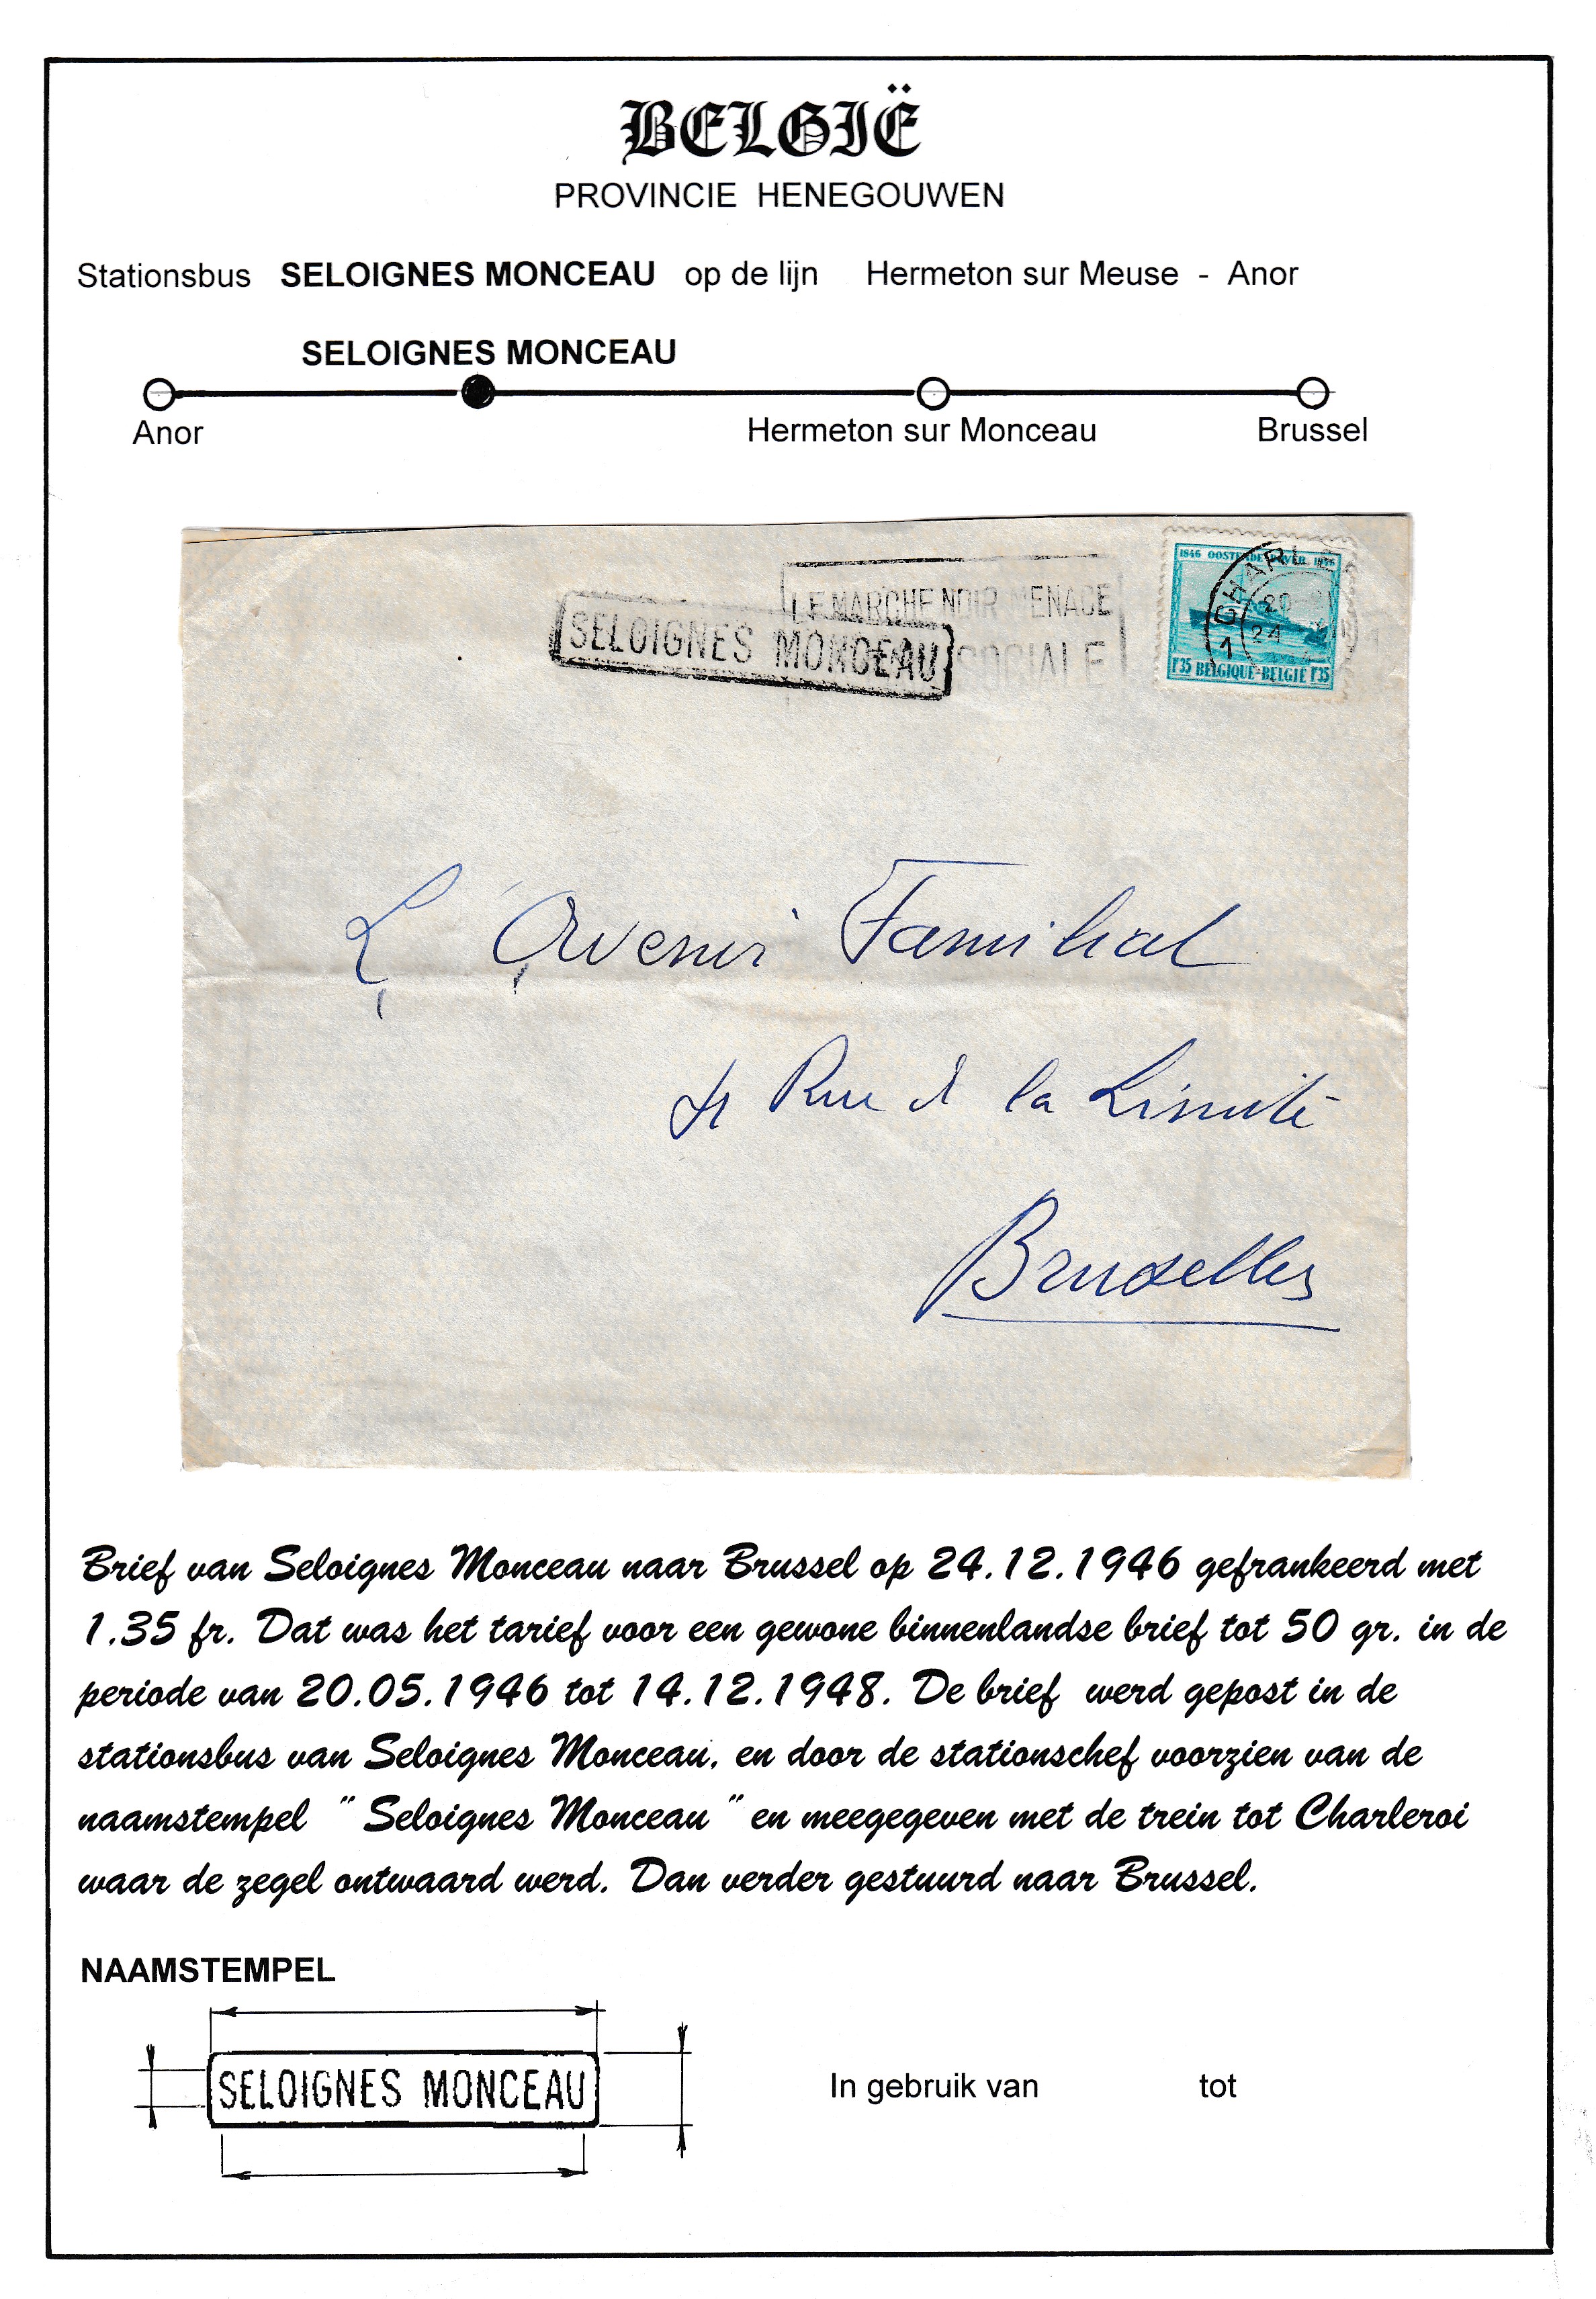 BELGIË
PROVINCIE HENEGOUWEN
Stationsbus SELOIGNES MONCEAU op de lijn Hermeton sur Meuse - Anor
SELOIGNES MONCEAU
Anor Hermeton sur Monceau Brussel
LE MARCHE NOIR MENACE
SOCIALE
SELOIGNES MONCEAU
1846 OOSTENDE-DOVER 1946
CHARLE
20
24
1
1F35 BELGIQUE-BELGIË 1F35
L'Avenir Familial
Rue de la Limite
Bruxelles
Brief van Seloignes Monceau naar Brussel op 24.12.1946 gefrankeerd met
1.35 fr. Dat was het tarief voor een gewone binnenlandse brief tot 50 gr. in de
periode van 20.05.1946 tot 14.12.1948. De brief werd gepost in de
stationsbus van Seloignes Monceau, en door de stationschef voorzien van de
naamstempel " Seloignes Monceau " en meegegeven met de trein tot Charleroi
waar de zegel ontwaard werd. Dan verder gestuurd naar Brussel.
NAAMSTEMPEL
SELOIGNES MONCEAU
In gebruik van tot